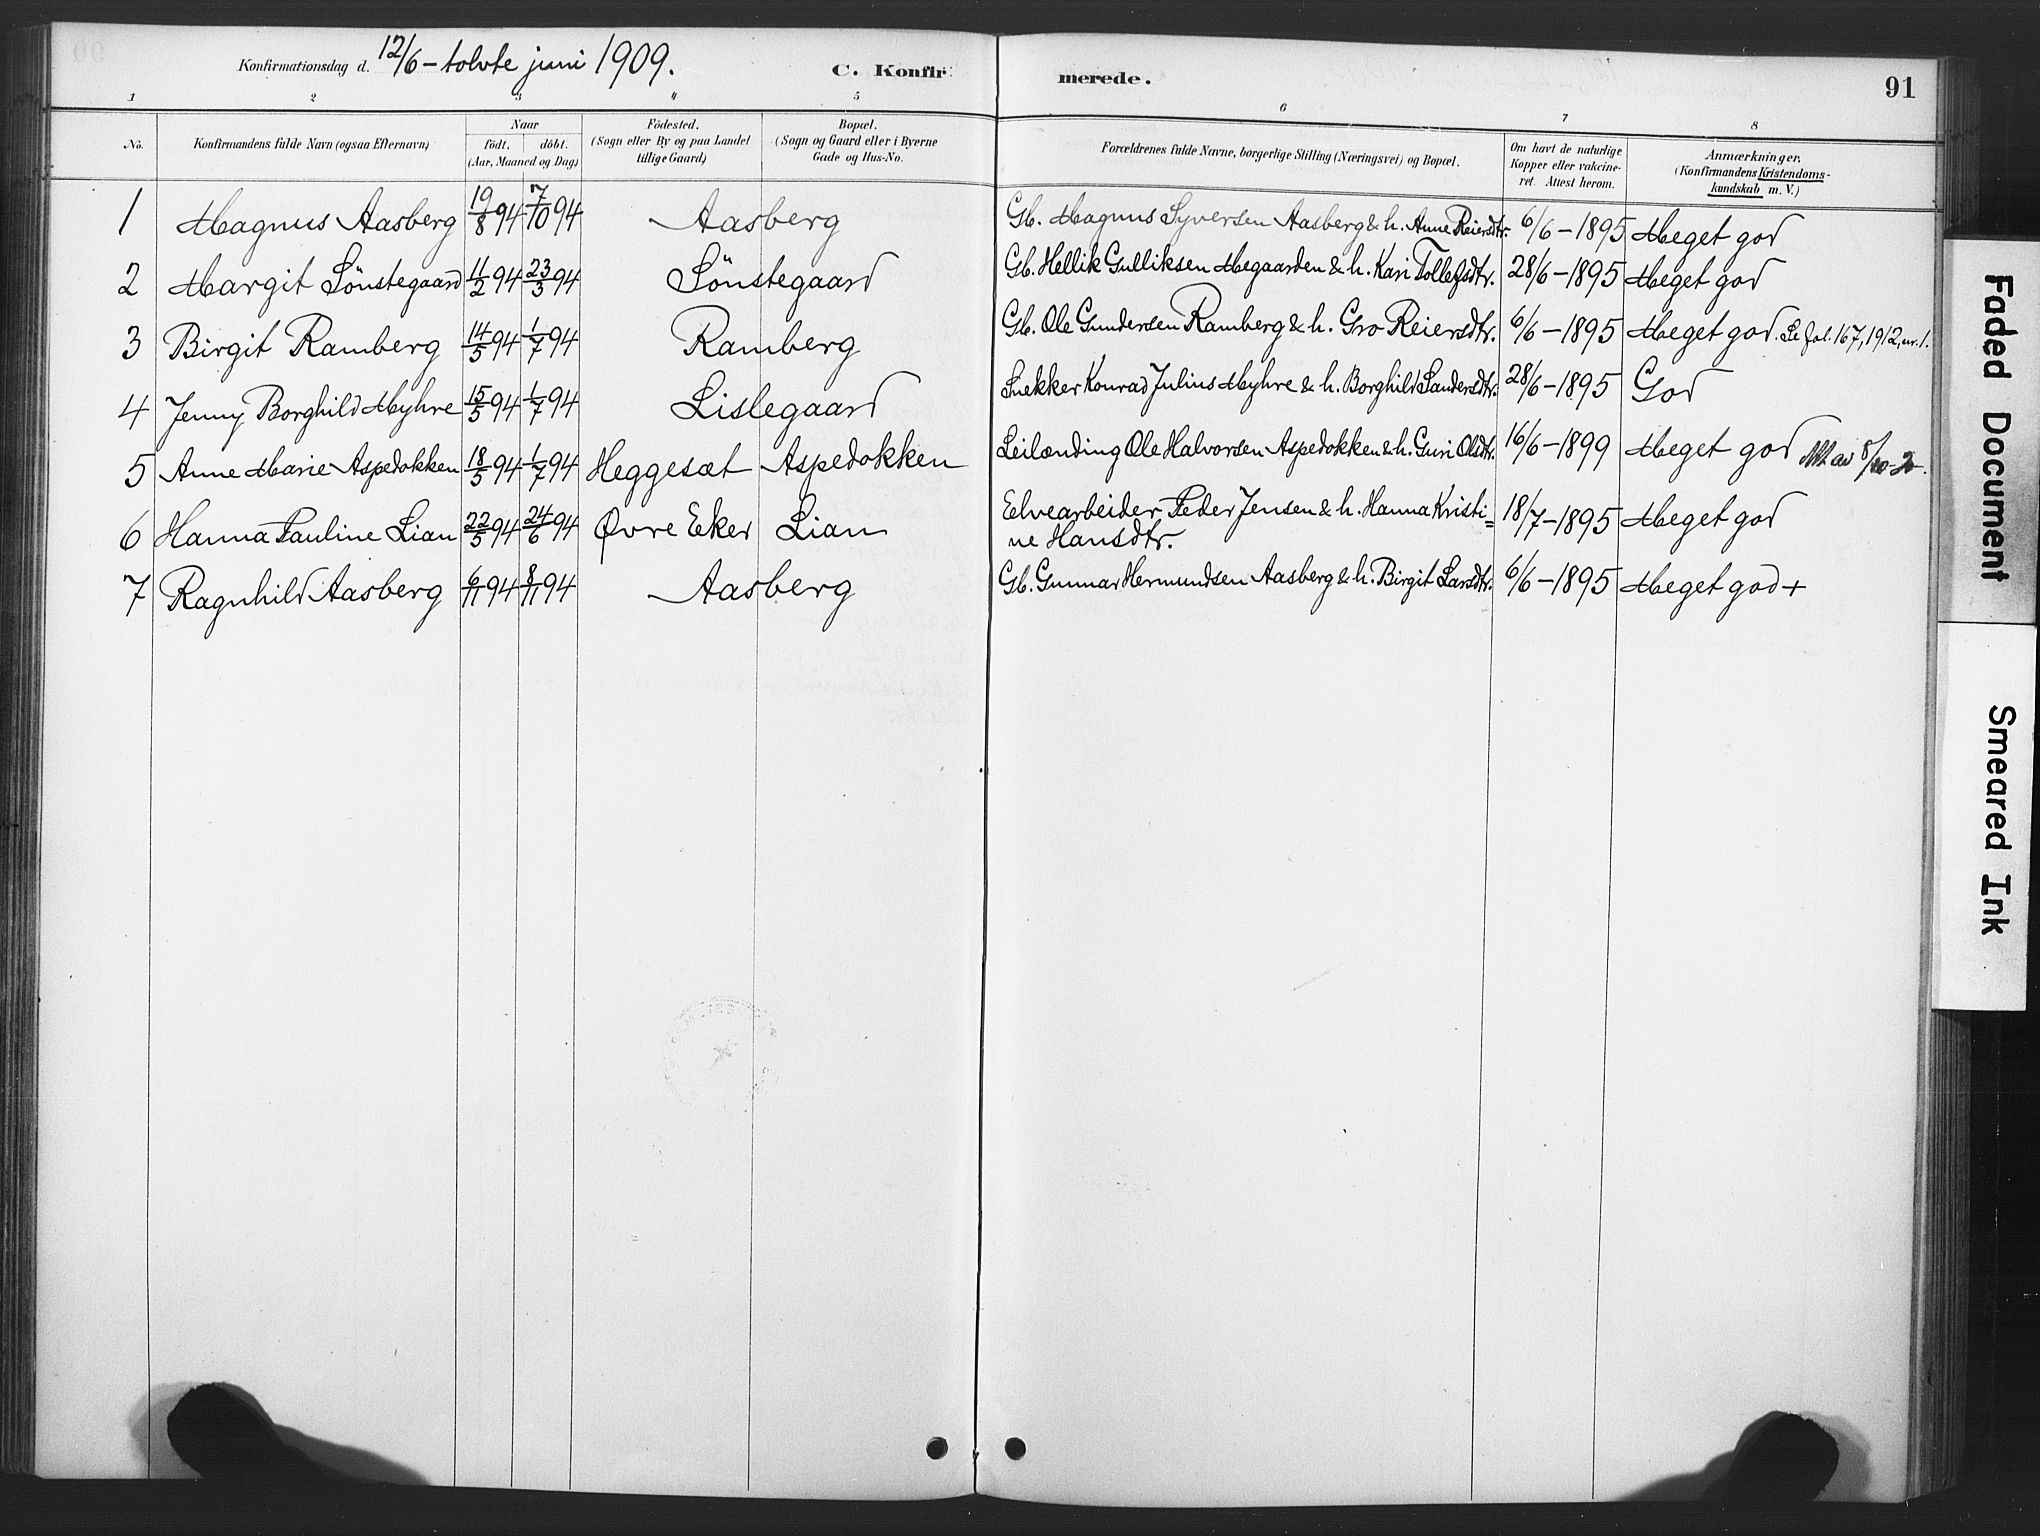 Konfirmationsdag d. 12/6 – tolvte juni 1909. C. Konfir merede. 91
1 2 3 4 5 6 7 8
No. Konfirmandens fulde Navn (ogsaa Efternavn) Naar födt. döbt. (Aar, Maaned og Dag) Födested. (Sogn eller By og paa Landet tillige Gaard) Bopæl. (Sogn og Gaard eller i Byerne Gade og Hus-No. Forældrenes fulde Navne, borgerlige Stilling (Næringsvei) og Bopæl. Om havt de naturlige Kopper eller vakcineret. Attest herom. Anmærkninger. (Konfirmandens Kristendomskundskab m. V.)
1 Magnus Aasberg 19/8 94 7/10 94 Aasberg Gb. Magnus Syversen Aasberg & h. Anne Reiersdtr. 6/6 – 1895 Meget god
2 Margit Sönstegaard 11/2 94 23/3 94 Sönstegaard Gb. Hellik Gulliksen Megaarden & h. Kari Tollefsdtr. 28/6 – 1895 Meget god
3 Birgit Ramberg 14/5 94 1/7 94 Ramberg Gb. Ole Gundersen Ramberg & h. Gro Reiersdtr. 6/6 – 1895 Meget god. Se fol. 167, 1912, nr. 1.
4 Jenny Borghild Myhre 15/5 94 1/7 94 Lislegaard Snekker Konrad Julius Myhre & h. Borghild Sandersdtr. 28/6 – 1895 God
5 Anne Marie Aspedokken 18/5 94 1/7 94 Heggesæt Aspedokken Leilænding Ole Halvorsen Aspedokken & h. Guri Olsdtr. 16/6 – 1899 Meget god
6 Hanna Pauline Lian 22/5 94 24/6 94 Øvre Eker Lian Elvearbeider Peder Jensen & h. Hanna Kristi=
ne Hansdtr. 18/7 – 1895 Meget god
7 Ragnhild Aasberg 6/11 94 8/11 94 Aasberg Gb. Gunnar Hermundsen Aasberg & h. Birgit Larsdtr. 6/6 – 1895 Meget god +
Faded Document
Smeared Ink